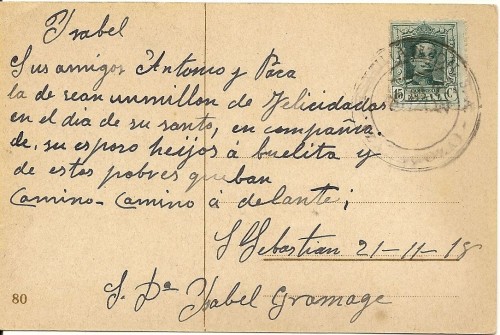 Ysabel
Sus amigos Antonio y Paca
la de sean unmillon de Felicidades
en el dia de su santo, en compañia
de, su esposo heijos á buelita y
de estos pobres que ban
Camino-Camino á de lante;
S Sebastian 21-11-18
S. Dª Ysabel Gramage
80
15 Cs